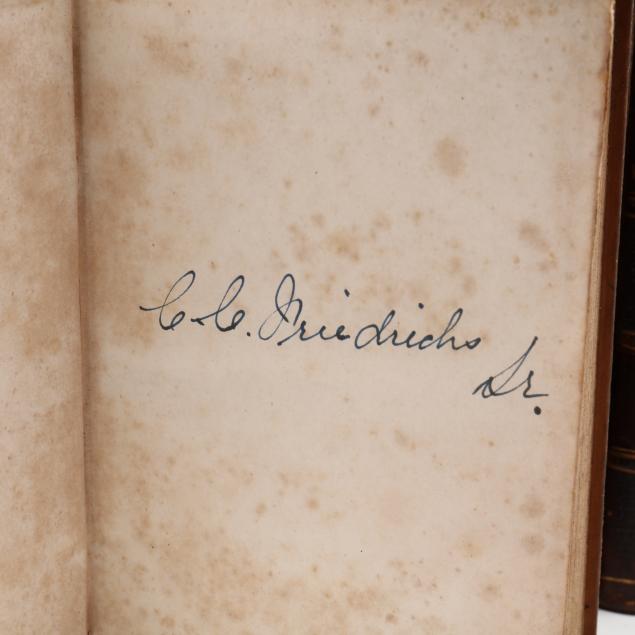 C. C. Friedrichs
Sr.